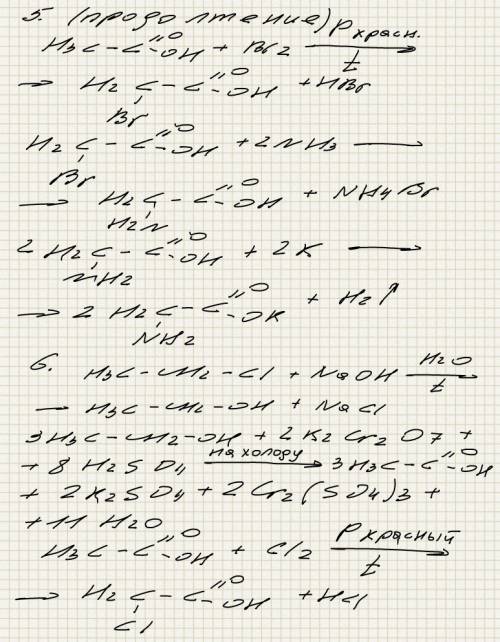 5. (продолжение) P красн.
H3C - C =O -OH + Br2 → t
→ H2C - C =O -OH + HBr
Br
H2C - C =O -OH + 2NH3 →
Br
→ H2C - C =O -OH + NH4Br
H2N
2 H2C - C =O -OH + 2K →
NH2
→ 2 H2C - C =O -OK + H2↑
NH2
6. H3C - CH2 - Cl + NaOH H2O → t
→ H3C - CH2 - OH + NaCl
3H3C - CH2 - OH + 2K2Cr2O7 +
+ 8H2SO4 на холоду → 3H3C - C =O -OH
+ 2K2SO4 + 2Cr2(SO4)3 +
+ 11H2O
H3C - C =O -OH + Cl2 P красный → t
→ H2C - C =O -OH + HCl
Cl